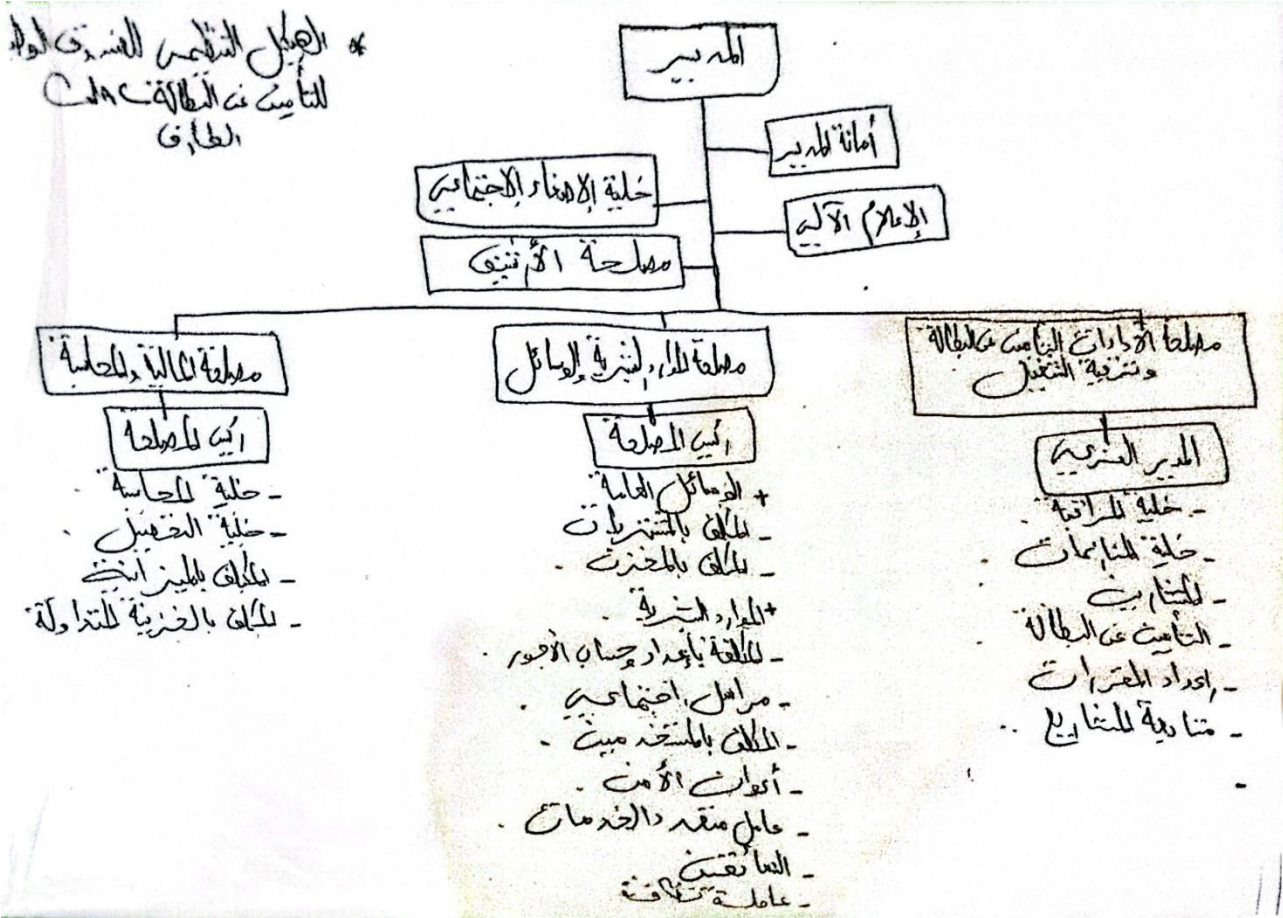 * الهيكل التنظيمي للصندوق الوط
للتأمين عن البطالة وكالة
الطارف
المدير
أمانة المدير
خلية الإصغاء الإجتماعي
الإعلام الآلي
مصلحة الأرشيف
مصلحة الأداءات التأمين عن البطالة
وترقية التشغيل
المدير الفرعي
- خلية المراقبة.
- خلية المنازعات
- المشاريع
- التأمين عن البطالة
- إعداد المقررات
- متابعة المشاريع ..
-
مصلحة الموارد البشرية والوسائل
رئيس المصلحة
+ الوسائل العامة
- المكلف بالمشتريات
- المكلف بالمخزن.
+ الموارد البشرية
- المكلفة بإعداد حساب الأجور.
- مراسل اجتماعي.
- المكلف بالمستخدمين.
- أعوان الأمن.
- عامل متعدد الخدمات.
- السائقين
- عاملة نظافة
مصلحة المالية والمحاسبة
رئيس المصلحة
- خلية المحاسبة
- خلية التحصيل.
- المكلف بالميزانية
- المكلف بالخزينة المتداولة